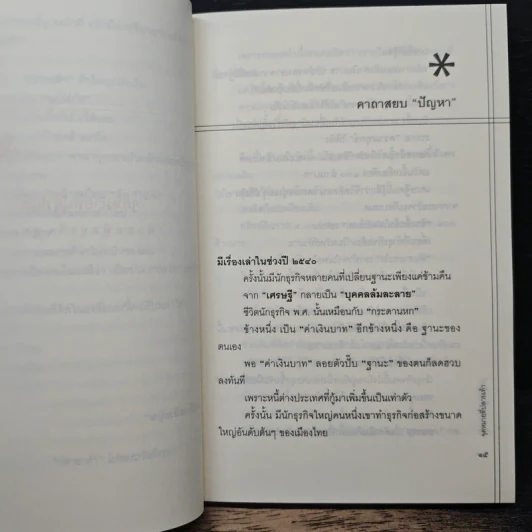 *
คาถาสยบ “ปัญหา”
มีเรื่องเล่าในช่วงปี ๒๕๔๐
ครั้งนั้นมีนักธุรกิจหลายคนที่เปลี่ยนฐานะเพียงแค่ข้ามคืน
จาก “เศรษฐี” กลายเป็น “บุคคลล้มละลาย”
ชีวิตนักธุรกิจ พ.ศ. นั้นเหมือนกับ “กระดานหก”
ข้างหนึ่ง เป็น “ค่าเงินบาท” อีกข้างหนึ่ง คือ ฐานะของ
ตนเอง
พอ “ค่าเงินบาท” ลอยตัวปั๊บ “ฐานะ” ของตนก็ลดฮวบ
ลงทันที
เพราะหนี้ต่างประเทศที่กู้มาเพิ่มขึ้นเป็นเท่าตัว
ครั้งนั้น มีนักธุรกิจใหญ่คนหนึ่งเขาทำธุรกิจก่อสร้างขนาด
ใหญ่อันดับต้นๆ ของเมืองไทย